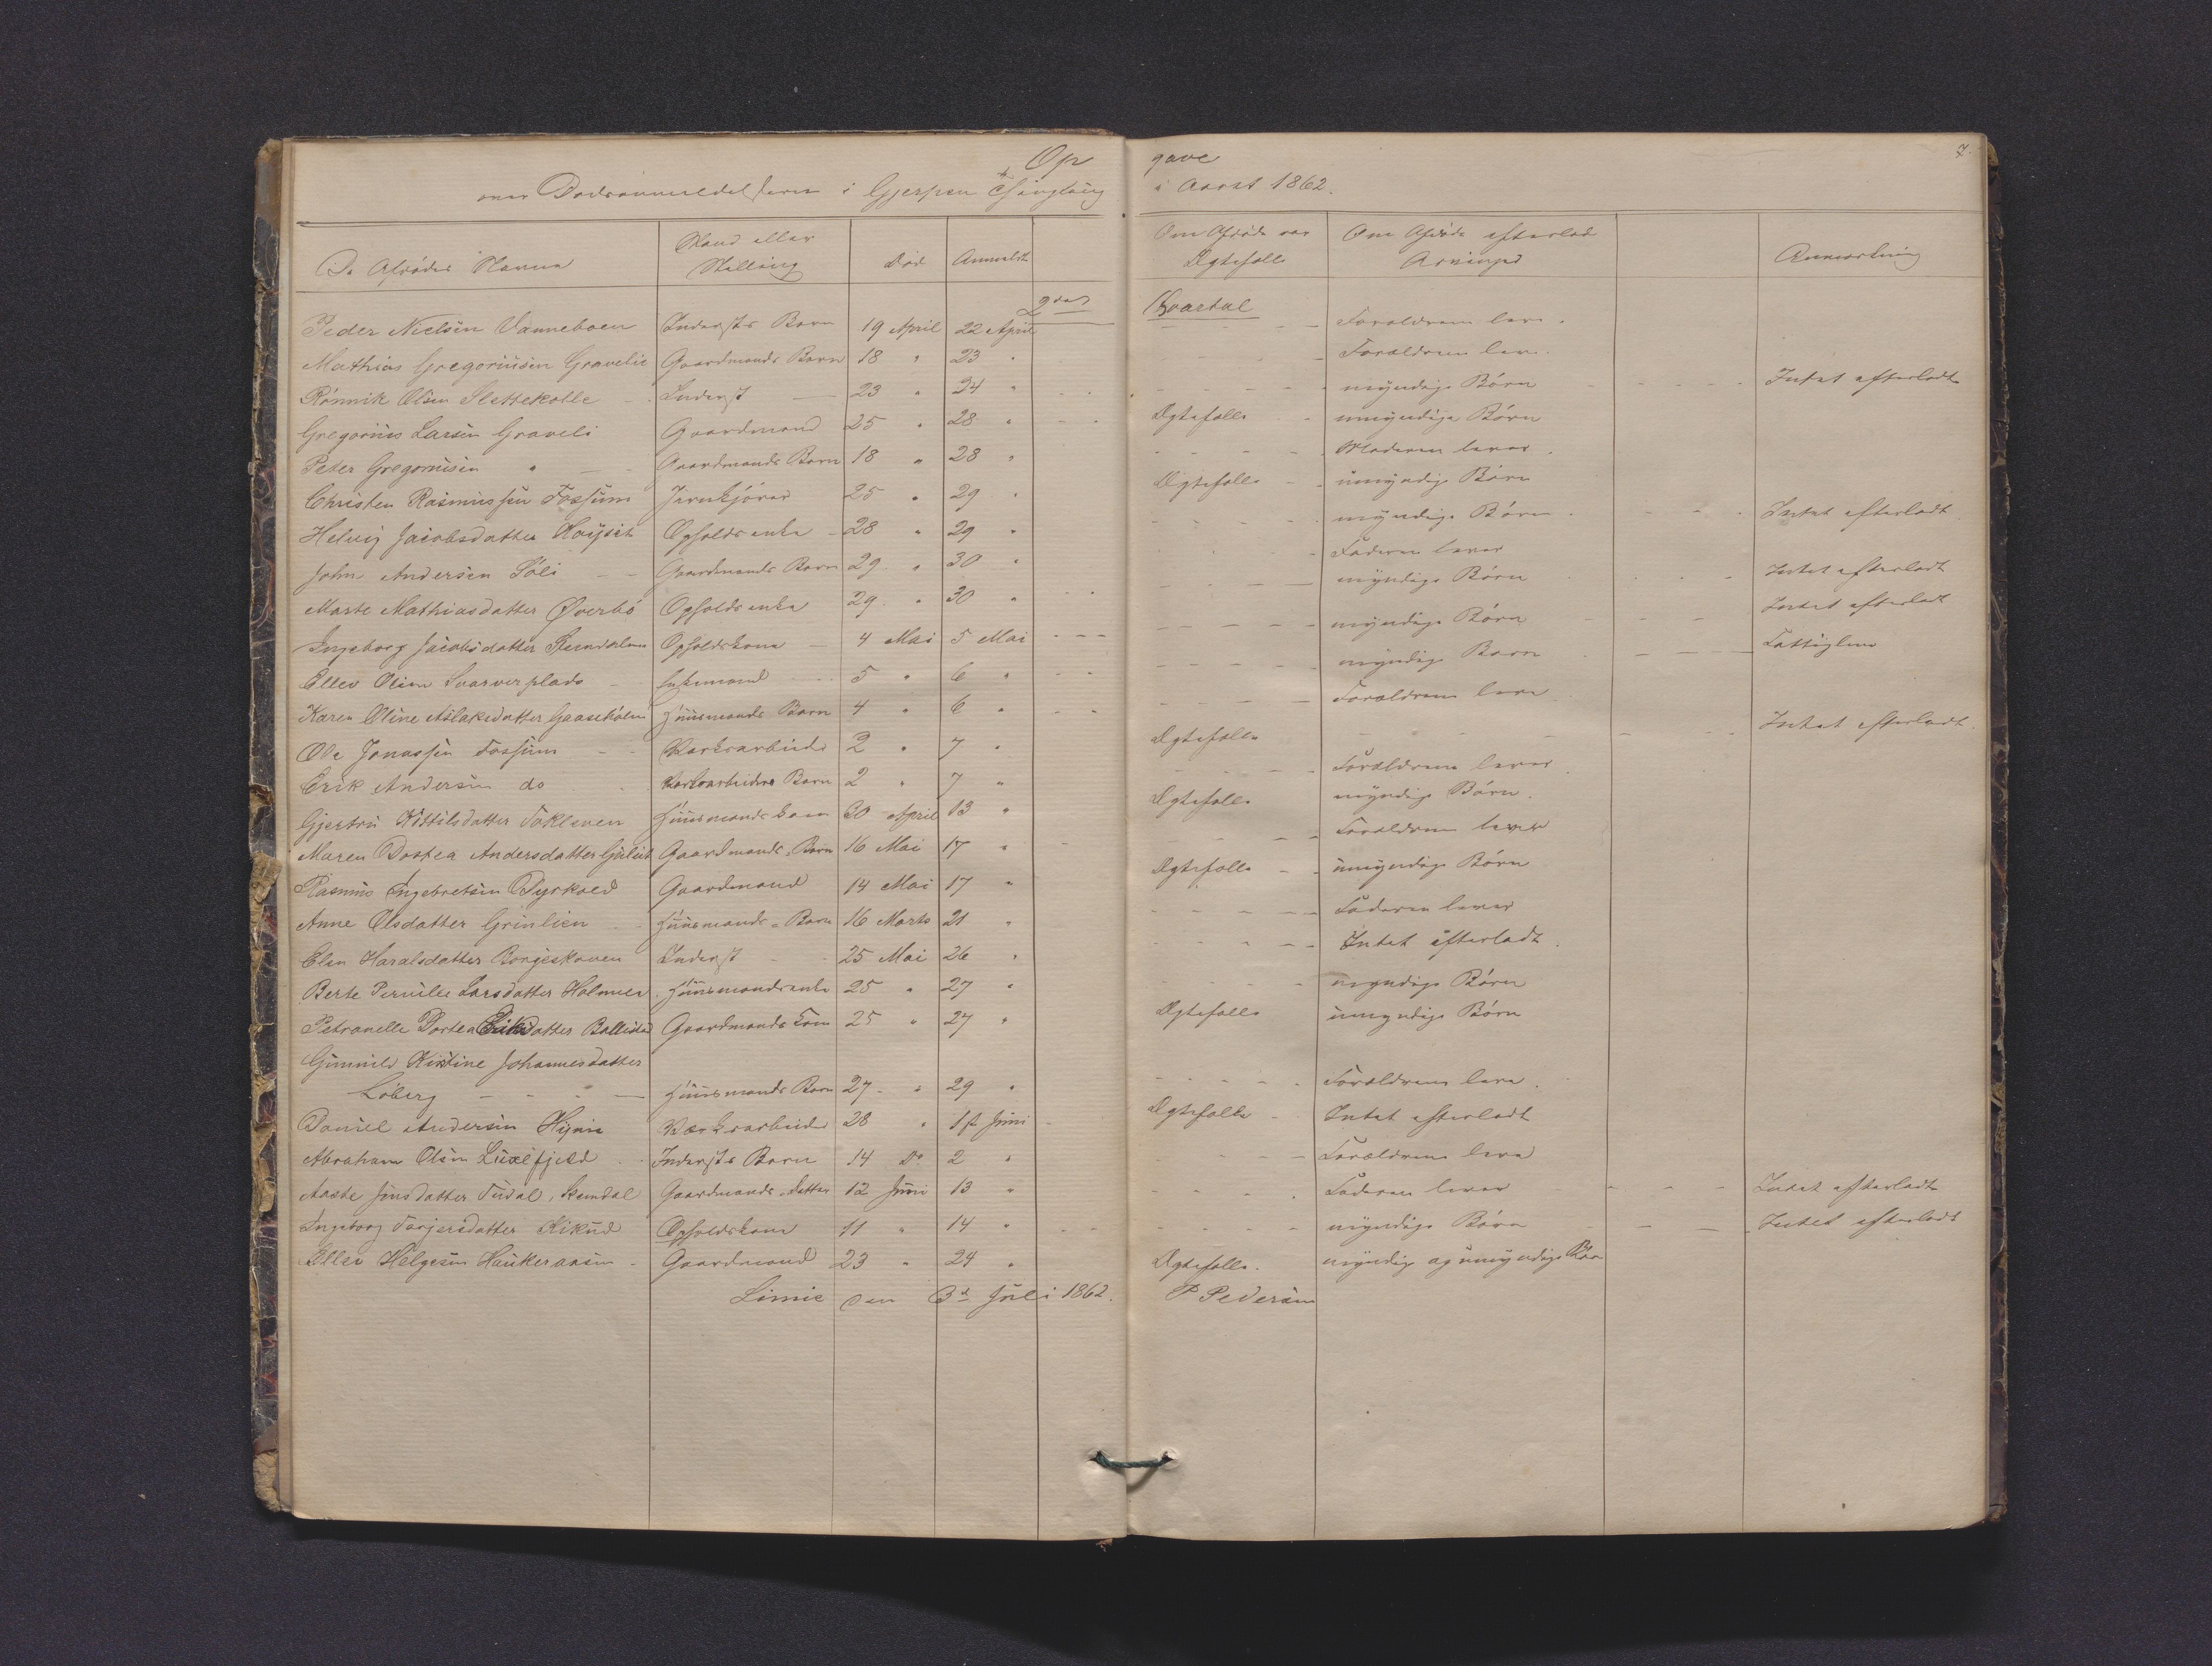 Opgave 7.
over Dødsanmeldelserne i Gjerpen Thinglaug i Aaret 1862.
De Afdødes Navne Stand eller Stilling Død Anmeldt Om Afdøde var Ægtefolk Om Afdøde efterlod Arvinger Anmærkning
2det Kvartal
Peder Nielsen Vanneboen Inderst's Barn 19 April 22 April - - - Forældrene leve.
Mathias Gregoriusen Gravelie Gaardmands Barn 18 " 23 " - Forældrene leve.
Rønnik Olsen Slettekolle - Inderst - 23 " 24 " - - - - - myndige Børn - - - - Intet efterladt
Gregorius Larsen Graveli Gaardmand 25 " 28 " - - Ægtefolk - umyndige Børn
Peder Gregoriusen " - - Gaardmands Barn 18 " 28 " - - - - - Moderen lever.
Christen Rasmussen Fossum Jernkjører 25 " 29 " Ægtefolk - - umyndige Børn
Helvig Jacobsdatter Høyset Opholdsenke - 28 " 29 " - - - - myndige Børn. - - - Intet efterladt
John Andersen Søli - - Gaardmands Barn 29 " 30 " - Faderen lever
Marte Mathiasdatter Øverbø Opholdsenke 29 " 30 " - - - - - - myndige Børn - - - Intet efterladt
Ingeborg Jacobsdatter Stemdalen Opholdskone - 4 Mai 5 Mai - - - - - - - - myndige Børn - - - Intet efterladt
Ellev Olsen Svarverplads - Enkemand - - 5 " 6 " - - - - - - - myndige Børn - - - - Fattiglem
Karen Oline Aslaksdatter Gaaseholm Huusmands Barn 4 " 6 " - - - - - - Forældrene leve
Ole Jonassen Fossum - - Værksarbeider 2 " 7 " Ægtefolk - - - - - Intet efterladt.
Erik Andersen do Værksarbeiders Barn 2 " 7 " - - - - Forældrene lever
Gjertru Kittilsdatter Fokleven Huusmandskone 30 April 13 " Ægtefolk myndige Børn.
Maren Dortea Andersdatter Gulset Gaardmands Barn 16 Mai 17 " - - - - Forældrene lever
Rasmus Ingebretsen Dyrkoed Gaardmand 14 Mai 17 " Ægtefolk - - umyndige Børn
Anne Olsdatter Grinlien - - Huusmands Barn 16 Marts 21 " - - - - - Faderen lever
Elen Haralsdatter Borgeskoven Inderst - - 25 Mai 26 " - - - - - Intet efterladt.
Berte Pernille Larsdatter Holmen Huusmandsenke 25 " 27 " - - - - myndige Børn
Petronelle Dortea Eriksdatter Bollestad Gaardmandskone 25 " 27 " Ægtefolk umyndige Børn
Gunnild Kistine Johannesdatter
Løberg - - - - Huusmands Barn 27 - " 29 " - - - - - Forældrene leve.
Daniel Andersen Hynie Værksarbeider 28 " 1ste Juni Ægtefolk - Intet efterladt
Abraham Olsen Luxefjeld . Inderst's Barn 14 Do 2 " - - - - Forældrene leve
Aaste Jensdatter Tudal, Stemdal Gaardmands Datter 12 Juni 13 " - - - - Faderen lever - - - - Intet efterladt
Ingeborg Torjersdatter Kikud Opholdskone 11 " 14 " - - - - - - - myndige Børn - - - Intet efterladt
Ellev Helgesen Haukeraasen - Gaardmand 23 " 24 " Ægtefolk. myndige og umyndige Børn
Limie den 3d Juli 1862. P Pedersen